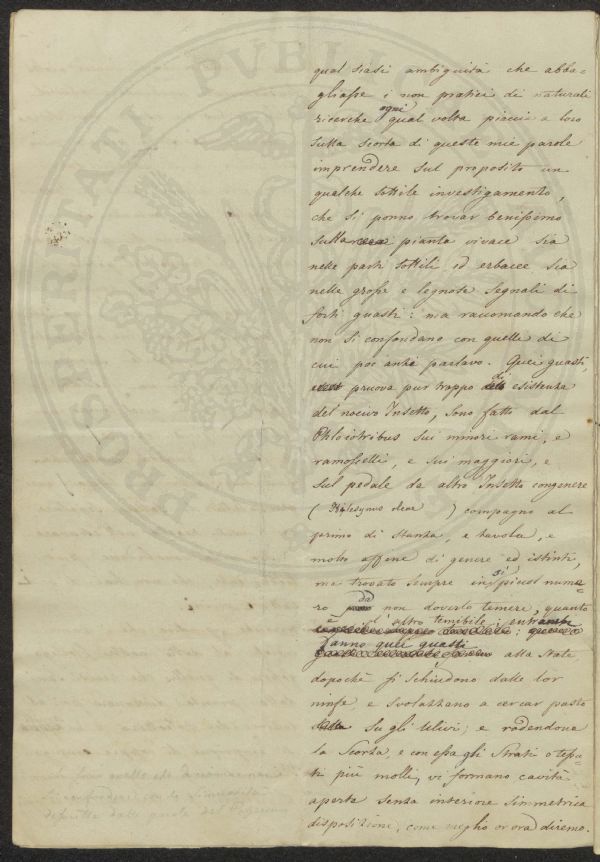 qual siasi ambiguità che abba-
gliasse i non pratici di naturali
ricerche ogni qual volta piaccia a loro
sulla scorta di queste mie parole
imprendere sul proposito un
qualche sottile investigamento,
che si ponno trovar benissimo
sulla pianta vivace sia
nelle parti sottili ed erbacee sia
nelle grosse e legnose segnali di
forti guasti: ma raccomando che
non si confondano con quelle di
cui poc'anzi parlavo. Quei guasti,
pruova pur troppo di esistenza
del nocivo Insetto, sono fatti dal
Phloiotribus sui minori rami, e
ramoscelli, e sui maggiori, e
sul pedale da altro Insetto congenere
( Hilesynus oleae ) compagno al
primo di stanza, e tavola, e
molto affine di genere ed istinti,
ma trovato sempre in sì picciol nume-
ro da non doverlo temere, quanto
è l'altro temibile, entrambi
fanno quei guasti alla State
dopochè si schiudono dalle lor
ninfe, e svolazzano a cercar pasto
su gli Ulivi; e rodendone
la Scorza, e con essa gli Strati o tessu-
ti più molli, vi formano cavità
aperta senza interiore simmetrica
disposizione, come meglio or ora diremo.
PROSPERITAT PVBL